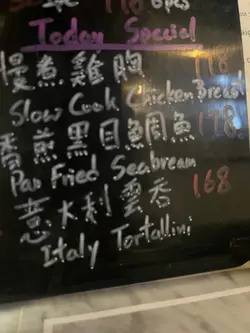 118 6pcs
Today Special
慢煮雞胸 118
Slow Cook Chicken Breast
香煎黑目鯛魚 178
Pan Fried Seabream
意大利雲吞 168
Italy Tortallini